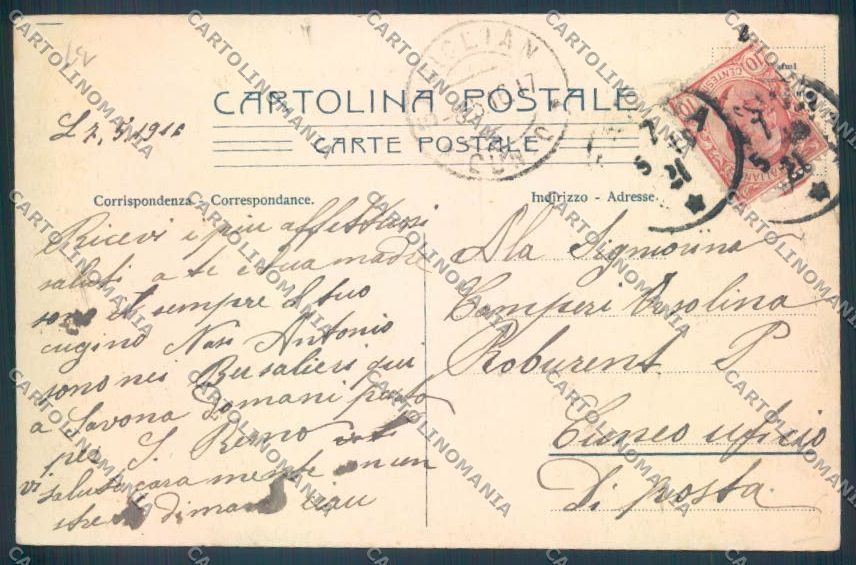 CARTOLINA POSTALE
CARTE POSTALE
Corrispondenza - Correspondance.
Indirizzo - Adresse.
L 7, 5 1916
Ricevi i piu affettuosi
saluti a te e tua madre
sono il sempre il tuo
cugino Nasi Antonio
sono nei Bersalieri qui
a Savona Domani parto
per S. Remo
vi saluto caramente con un
stre di mano ciau
Ala Signorina
Camperi Orsolina
Roburent P
Cuneo uficio
Di posta
CENTESIMI 10
CARTOLINOMANIA